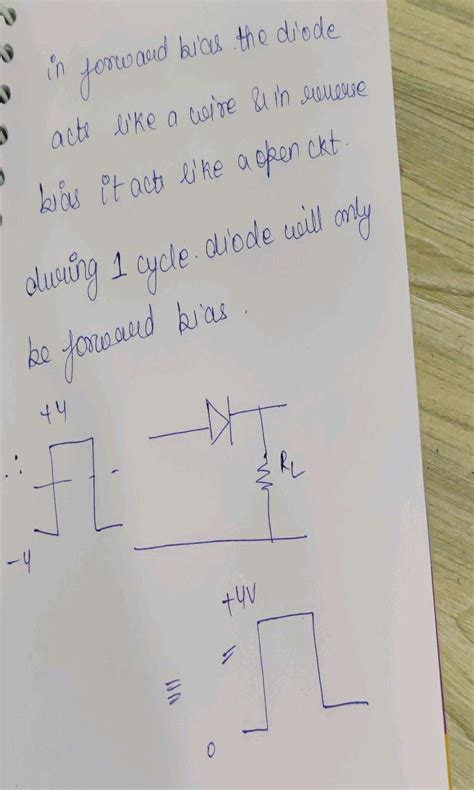 in forward bias the diode
acts like a wire & in reverse
bias it acts like a open ckt.
during 1 cycle. diode will only
be forward bias.
+4
∴
-4
RL
+4V
=
≡
0